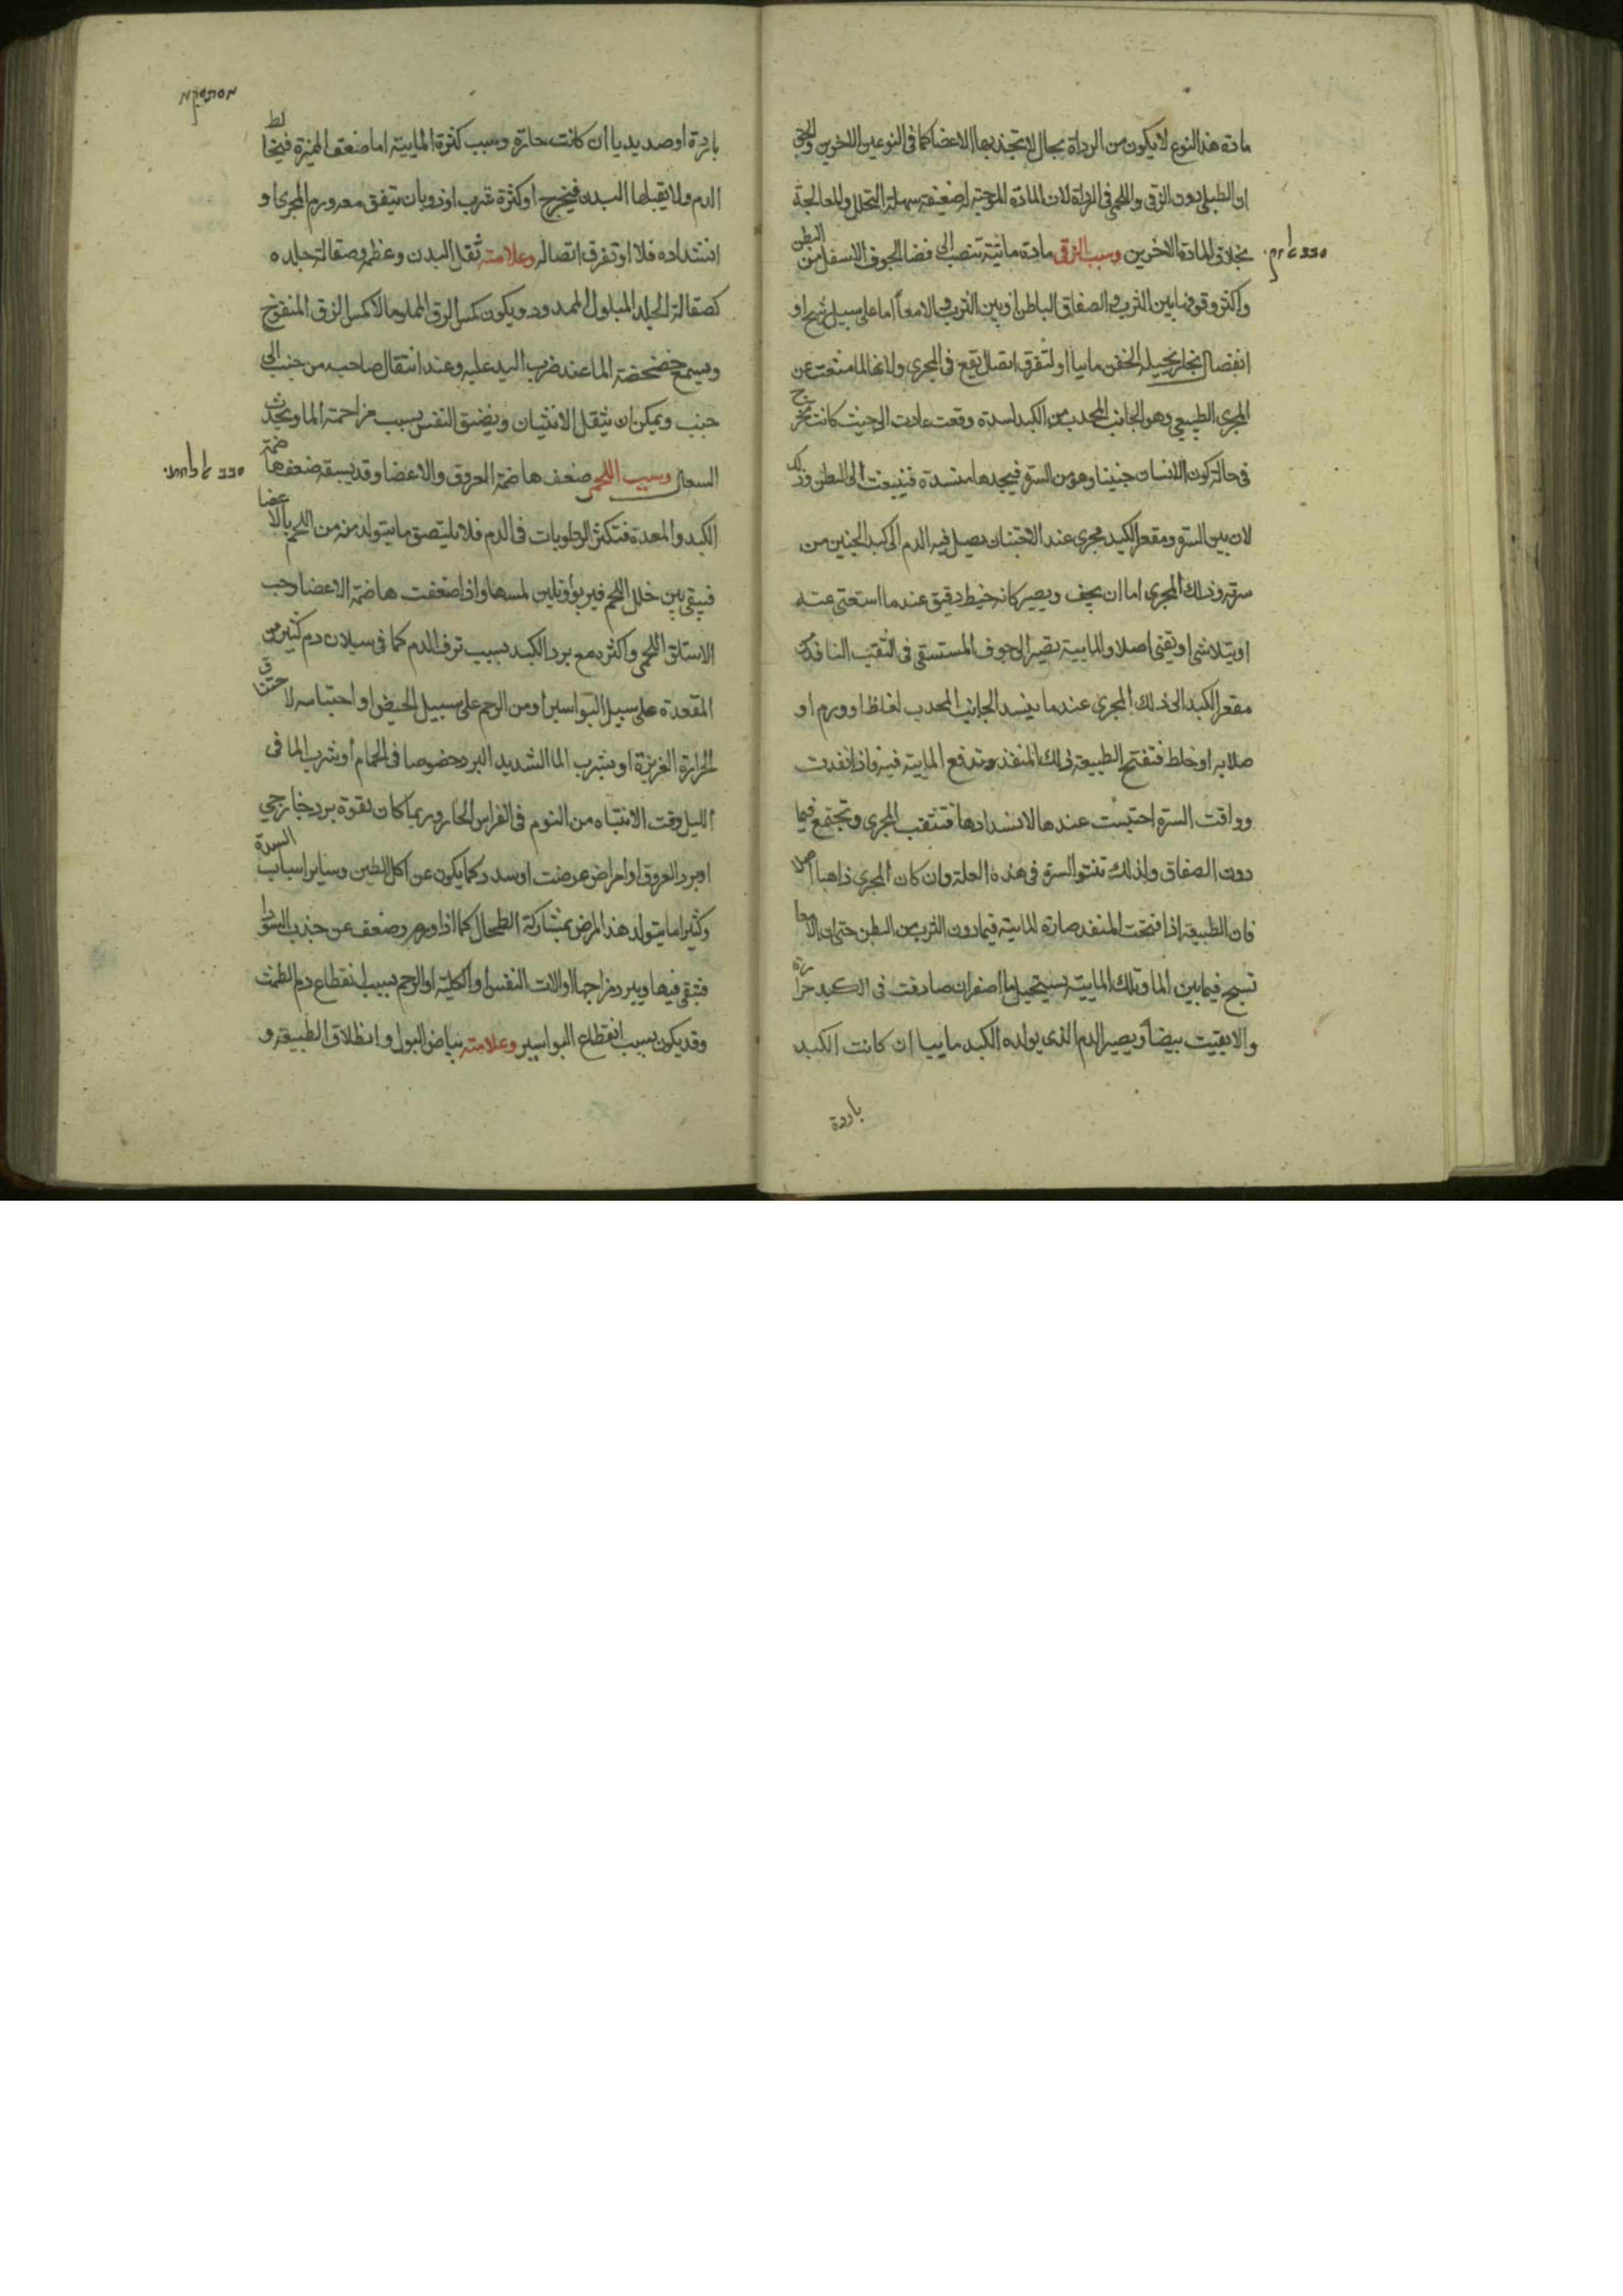 مادة هذا النوع لا يكون من الرداة بحال لا تجذبها الاعضا كما في النوعين الاخرين والحق
ان الطبلي دون الزقي واللحمي في الرداة لان المادة الموجبة له ضعيفة سهلة التحلل والمعالجة
بخلاف المادة الاخرين وسبب الزقي مادة مائية تنصب الى فضا الجوف الاسفل من البطن
واكثر وقوفها بين الثرب والصفاق الباطن او بين الثرب والامعا اما على سبيل رشح او
انفصال بخار يحيله الحقن مائيا او لتفرق اتصال يقع في المجرى ولانها لما منعت عن
المجرى الطبيعي وهو الجانب المحدب من الكبد لسدة وقعت عادت الى حيث كانت تخرج
في حالة كون الانسان جنينا وهو من السرة فيجدها منسدة فينبعث الى البطن وذلك
لان بين السرة ومقعر الكبد مجرى عند الاجتنان يصل فيه الدم الى كبد الجنين من
سرته وذلك المجرى اما ان يجف ويصير كانه خيط دقيق عندما استغنى عنه
او يتلاشى او يفنى اصلا والمايية تصير الى جوف المستسقي في الثقب النافذ من
مقعر الكبد الى ذلك المجرى عندما ينسد الجانب المحدب لغلظ او ورم او
صلابه او خلط فتفتح الطبيعة ذلك المنفذ وتدفع المايية فيه فاذا نفدت
ووافت السرة احتبست عندها لانسدادها فتنقب المجرى وتجتمع فيما
دون الصفاق ولذلك تنتو السرة في هذه العلة وان كان المجرى ذاهبا اصلا
فان الطبيعة اذا فتحت المنفذ صارة المايية فيما دون الثرب من البطن حتى ان الامعا
تسبح فيما بين الما وتلك المايية يستحيل ما اصفر ان صادفت في الكبد حرارة
والا بقيت بيضا ويصير الدم الذي يولده الكبد ماييا ان كانت الكبد
باردة
סבב אל זק
باردة او صديديا ان كانت حارة وسبب كثرة المايية اما ضعف المميزة فيخالط
الدم ولا يقبلها البدن فيخرج او كثرة شرب او ذوبان يتفق معه ورم المجرى او
انسداده فلا او تفرق اتصاله وعلامته ثقل البدن وعظمه وصقالة جلده
كصقالة الجلد المبلول الممدود ويكون كمس الزق المملو ما لا كمس الزق المنفوخ
ويسمع خضخضة الما عند ضرب اليد عليه وعند انتقال صاحبه من جنب الى
جنب ويمكن ان يثقل الانثيان ويضيق النفس بسبب مزاحمة الما ويحدث
السعال وسبب اللحمي ضعف هاضمة العروق والاعضا وقد يسبقه ضعف هاضمة
الكبد والمعدة فتكثر الرطوبات في الدم فلا يلتصق ما يتولد منه من اللحم بالاعضا
فيبقى بين خلل اللحم فيربو ويلين لمسها واذا ضعفت هاضمة الاعضا وجب
الاستسقا اللحمي واكثره مع برد الكبد بسبب نزف الدم كما في سيلان دم كثير من
المقعدة على سبيل البواسير او من الرحم على سبيل الحيض او احتباسه لاختناق
الحرارة الغريزة او بشرب الما الشديد البرد خصوصا في الحمام او شرب الما في
الليل وقت الانتباه من النوم في الفراش الحار وربما كان لقوة برد خارجي
او برد العروق او امراض عرضت او سدد كما يكون عن اكل الطين وساير اسباب السدة
وكثيرا ما يتولد هذا المرض بمشاركة الطحال كما اذا ورم وضعف عن جذب السودا
فتبقى فيها ويبرد مزاجها او الات النفس او الكلية او الرحم بسبب انقطاع دم الطمث
وقد يكون بسبب انقطاع البواسير وعلامته بياض البول وانطلاق الطبيعة و